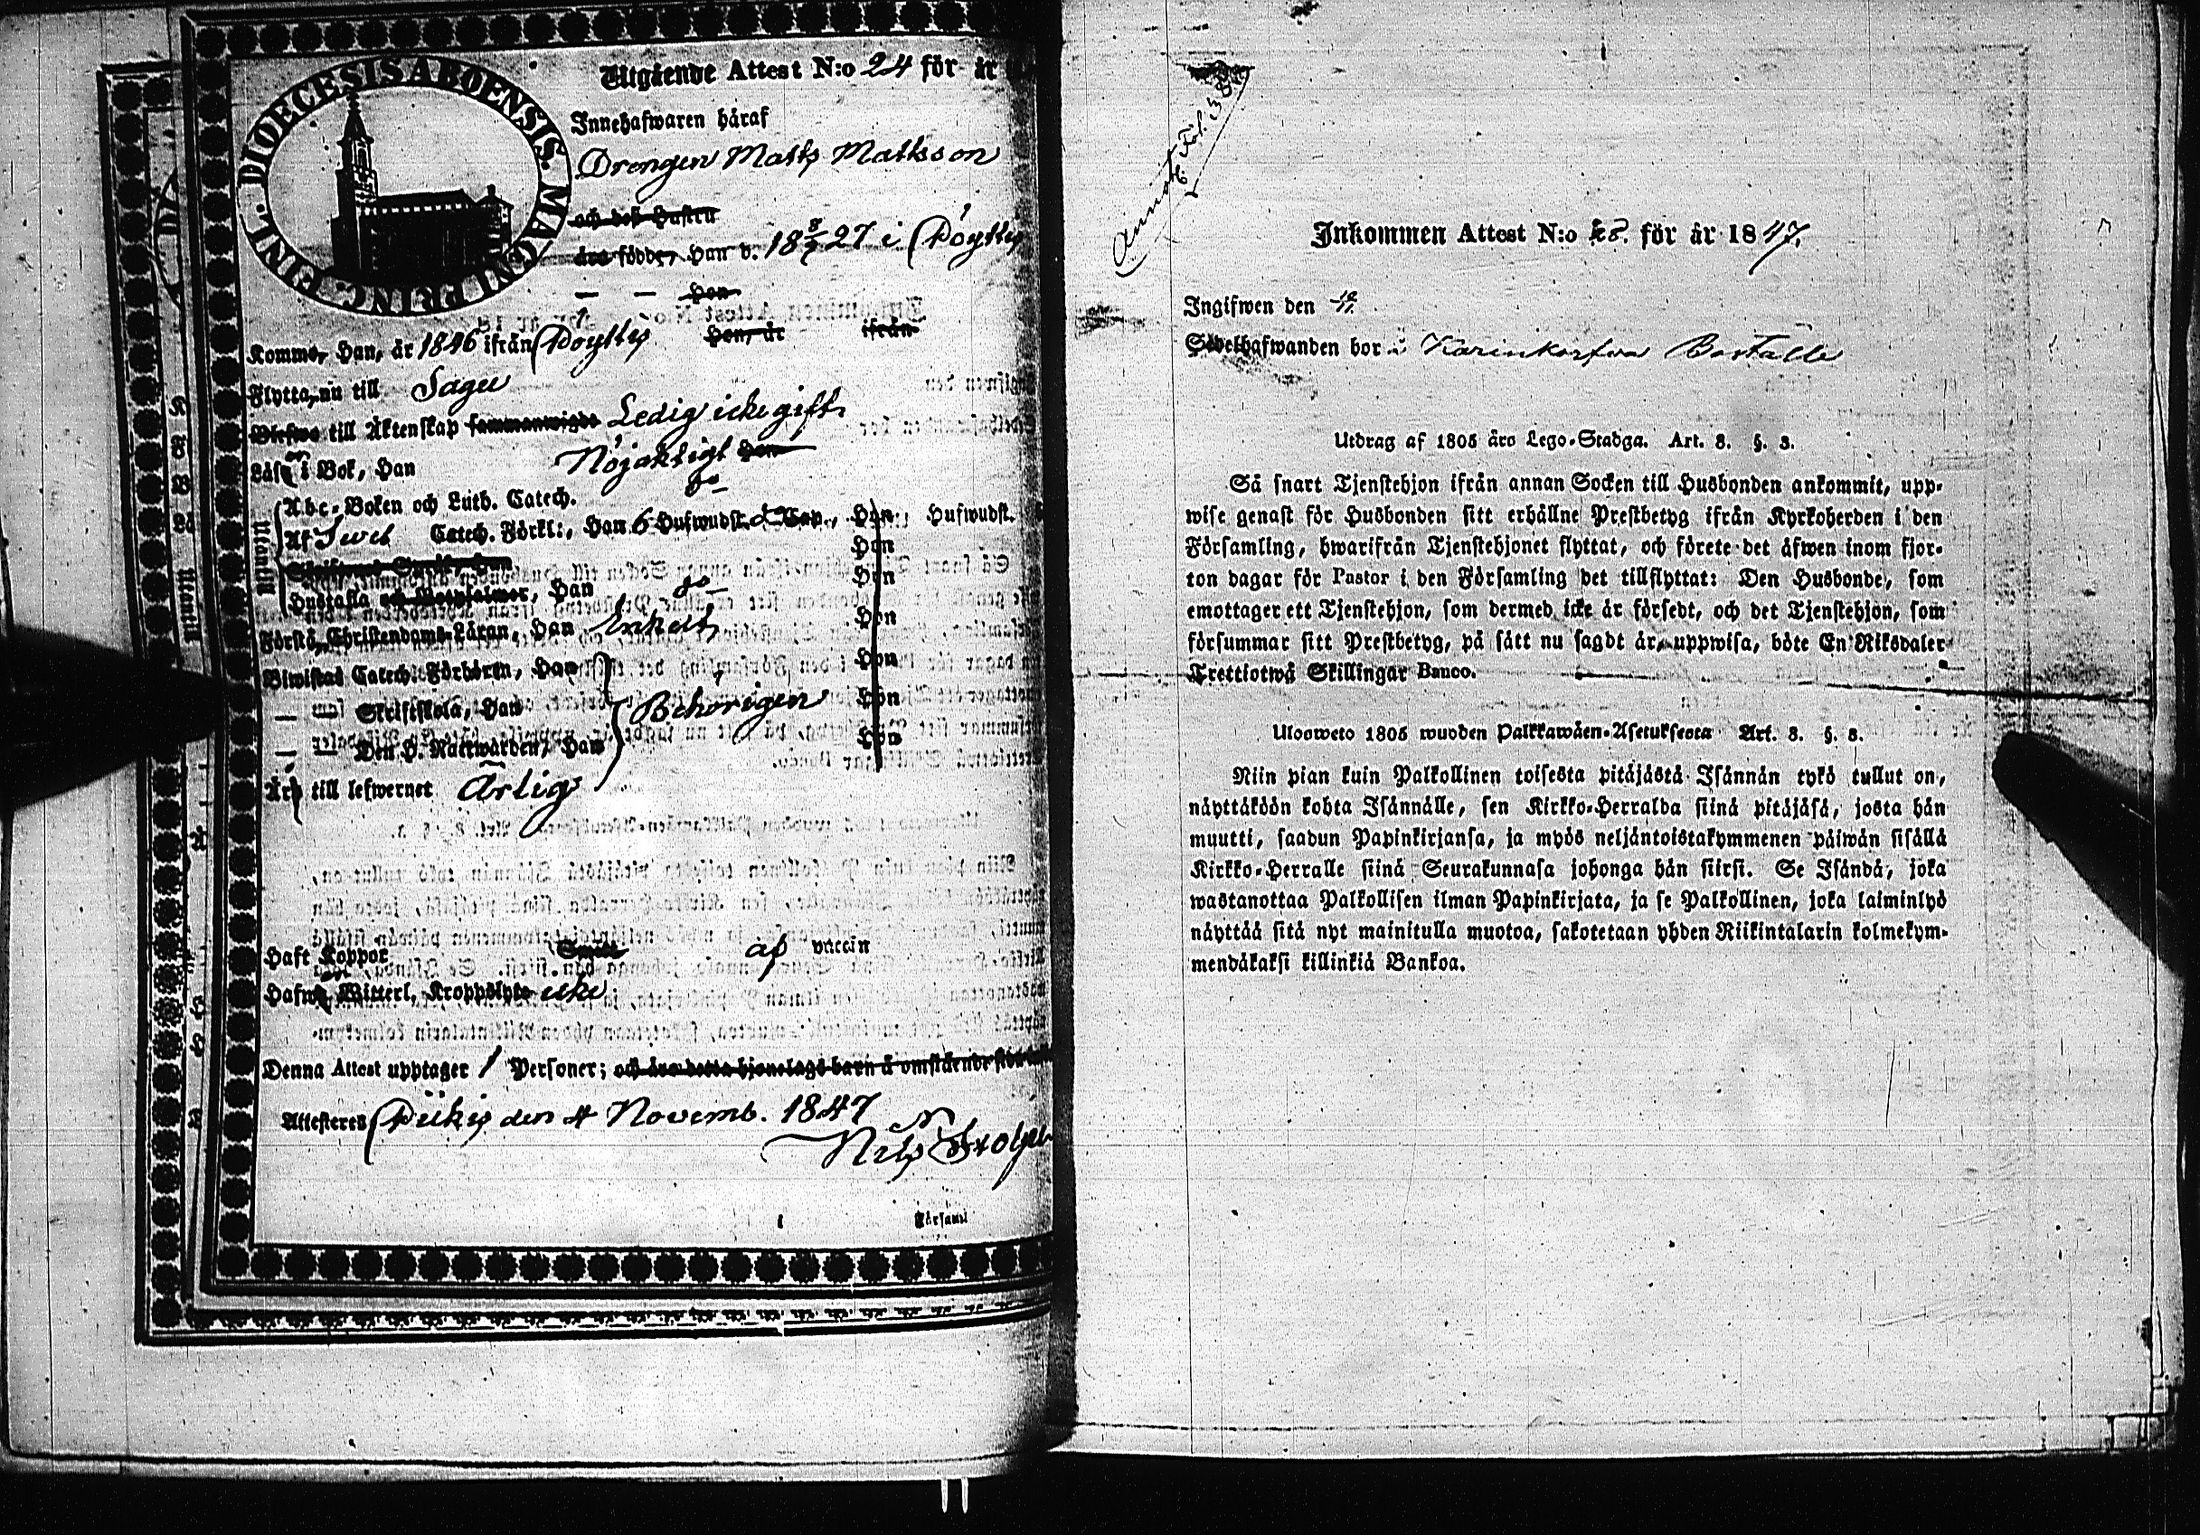 DIOECESIS ABOENSIS. MAGNI PRINC. FINL.
Utgående Attest N:o 24 för år
Innehafwaren häraf
Drengen Matts Mattsson
och dess Hustru
äro födde, Han d. 18 8/7 27 i Pöytty
— — Hon
Komme, Han, år 1846 ifrån Pöyttys Hon, år ifrån
Flytta, nu till Sagu
Blefwo till Äktenskap sammanwigde Ledig icke gift
Läse i Bok, Han Nöjaktigt Hon
Utantill
Abc-Boken och Luth. Catech. do
Af Sweb Catech. Förkl:, Han 6 Hufwudst. Cap., Hon, Hufwudst.
Hon
Hustafla Han do — Hon
Förstå Christendoms-Läran, Han Enkelt Hon
Biwistat Catech. Förhören, Han Hon
— — Skriftskola, Han Behörigen Hon
— — Den H. Nattwarden, Han Hon
Är till lefwernet Ärlig
Haft Koppor af naturen
Hafwa Witterl. Kroppslyte icke
Denna Attest upptager 1 Personer; och äro detta hjonelags barn å omstående
Attesteras Piikis den 4 Novemb. 1847
Nils
Församl
Annot. Fol. 38
Inkommen Attest N:o 28. för år 1847.
Ingifwen den 12/11.
Sedelhafwanden bor i Karinkorfwa Boställe
Utdrag af 1805 års Lego-Stadga. Art. 3. §. 3.
Så snart Tjenstehjon ifrån annan Socken till Husbonden ankommit, upp-
wise genast för Husbonden sitt erhållne Prestbetyg ifrån Kyrkoherden i den
Församling, hwarifrån Tjenstehjonet flyttat, och förete det äfwen inom fjor-
ton dagar för Pastor i den Församling det tillflyttat: Den Husbonde, som
emottager ett Tjenstehjon, som dermed icke är försedt, och det Tjenstehjon, som
försummar sitt Prestbetyg, på sätt nu sagdt är, uppwisa, böte En Riksdaler
Trettiotwå Skillingar Banco.
Ulosweto 1805 wuoden Palkkawäen-Asetuksesta Art. 3. §. 3.
Niin pian kuin Palkollinen toisesta pitäjästä Isännän tykö tullut on,
näyttäköön kohta Isännälle, sen Kirkko-Herralda siinä pitäjäsä, josta hän
muutti, saadun Papinkirjansa, ja myös neljäntoistakymmenen päiwän sisällä
Kirkko-Herralle siinä Seurakunnasa johonga hän siirsi. Se Isändä, joka
wastanottaa Palkollisen ilman Papinkirjata, ja se Palkollinen, joka laiminlyö
näyttää sitä nyt mainitulla muotoa, sakotetaan yhden Riikintalarin kolmekym-
mendäkaksi killinkiä Bankoa.